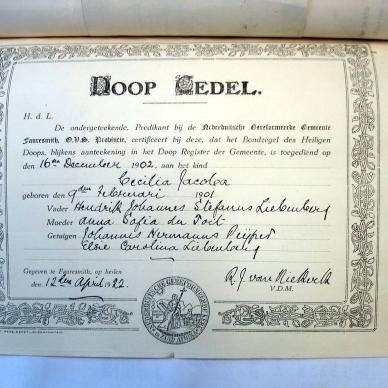 DOOP CEDEL.
H. d. L.
De ondergeteekende, Predikant bij de Nederduitsche Gereformeerde Gemeente
Fauresmith, O.V.S. Provincie, certificeert bij deze, dat het Bondzegel des Heiligen
Doops, blijkens aanteekening in het Doop Register der Gemeente, is toegediend op
den 16den December 1902, aan het kind
Cecilia Jacoba
geboren den 9den Februari 1901
Vader Hendrik Johannes Stefanus Liebenberg
Moeder Anna Sofia du Toit
Getuigen Johannes Hermanus
Elsie Carolina Liebenberg
Gegeven te Fauresmith, op heden
den 12den April 1922.
R. J. van Niekerk
V.D.M.